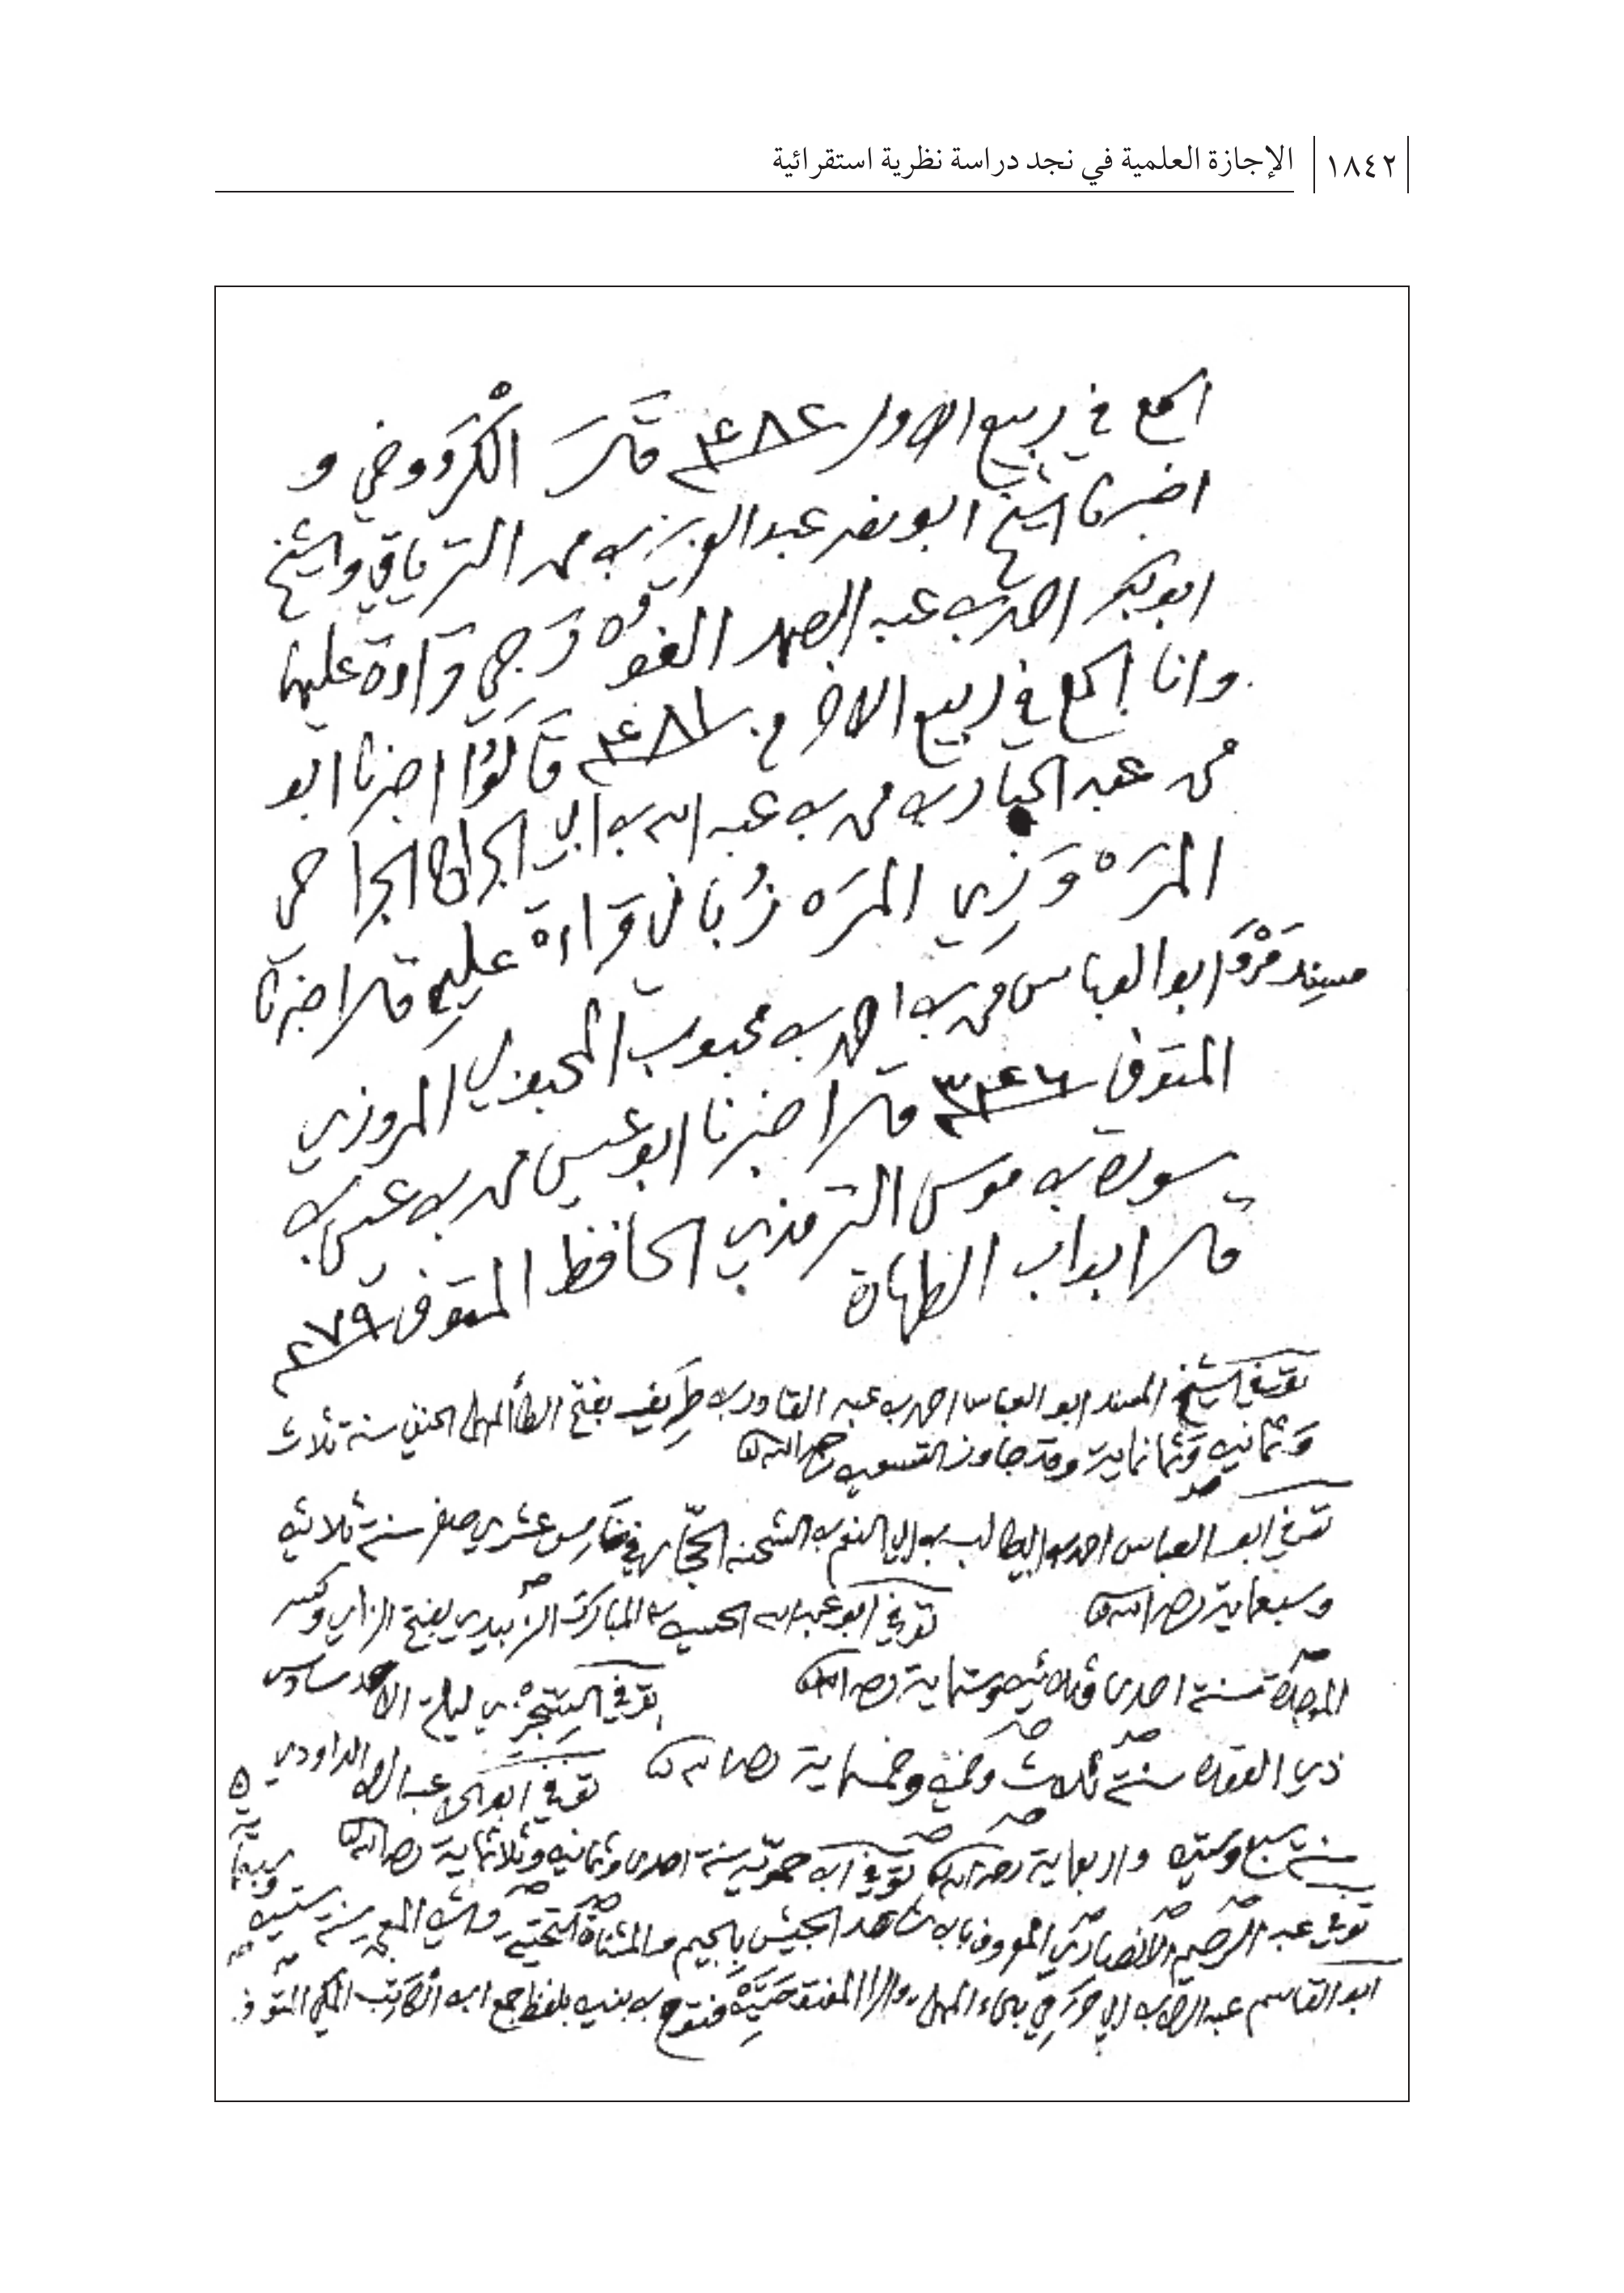 ١٨٤٢ الإجازة العلمية في نجد دراسة نظرية استقرائية
اسمع في ربيع الاول ٤٨٢ قال الكَرُوخي و
اخبرنا الشيخ ابو نصر عبد العزيز بن محمد الترياقي والشيخ
ابو بكر احمد بن عبد الصمد الغورجي قراءة عليهما
وانا اسمع في ربيع الاخر ٤٨١ قالوا اخبرنا ابو
محمد عبد الجبار بن محمد بن عبد الله بن ابي الجراح الجراحي
المَرْوَزي المرزباني قراءة عليه قال اخبرنا
مسند مَرْو ابو العباس محمد بن احمد بن محبوب المحبوبي المروزي
المتوفى ٣٤٦ قال اخبرنا ابو عيسى محمد بن عيسى بن
سورة بن موسى الترمذي الحافظ المتوفى ٢٧٩
قال ابواب الطهارة
توفي الشيخ المسند ابو العباس احمد بن عبد القادر بن طَرِيف بفتح الطاء المهملة الحنفي سنة ثلاث
وثمانين وثمانماية وقد جاوز التسعين رحمه الله
توفي ابو العباس احمد بن ابي طالب بن ابي النعم بن الشحنة الحجّار في خامس عشري صفر سنة ثلاثين
وسبعماية رحمه الله توفي ابو عبد الله الحسين بن المبارك الزَّبيدي بفتح الزاي وكسر
الموحدة سنة احدى وثلاثين وستماية رحمه الله توفي السِّجْزي ليلة الاحد سادس
ذي القعدة سنة ثلاث وخمسين وخمسماية رحمه الله توفي ابو الحسن عبد الرحمن الداودي
سنة سبع وستين واربعماية رحمه الله توفي ابن حمّويه سنة احدى وثمانين وثلاثماية رحمه الله
توفي عبد الرحيم الانصاري المعروف بابن شاهد الجيش بالجيم والمثناة التحتية والشين المعجمة سنة ستين وسبعماية
ابو القاسم عبد الرحمن بن ابي حَرَمي بحاء المهملة والراء المفتوحتين فتوح بن بنين بلفظ جمع ابن الكاتب المكي المتوفى